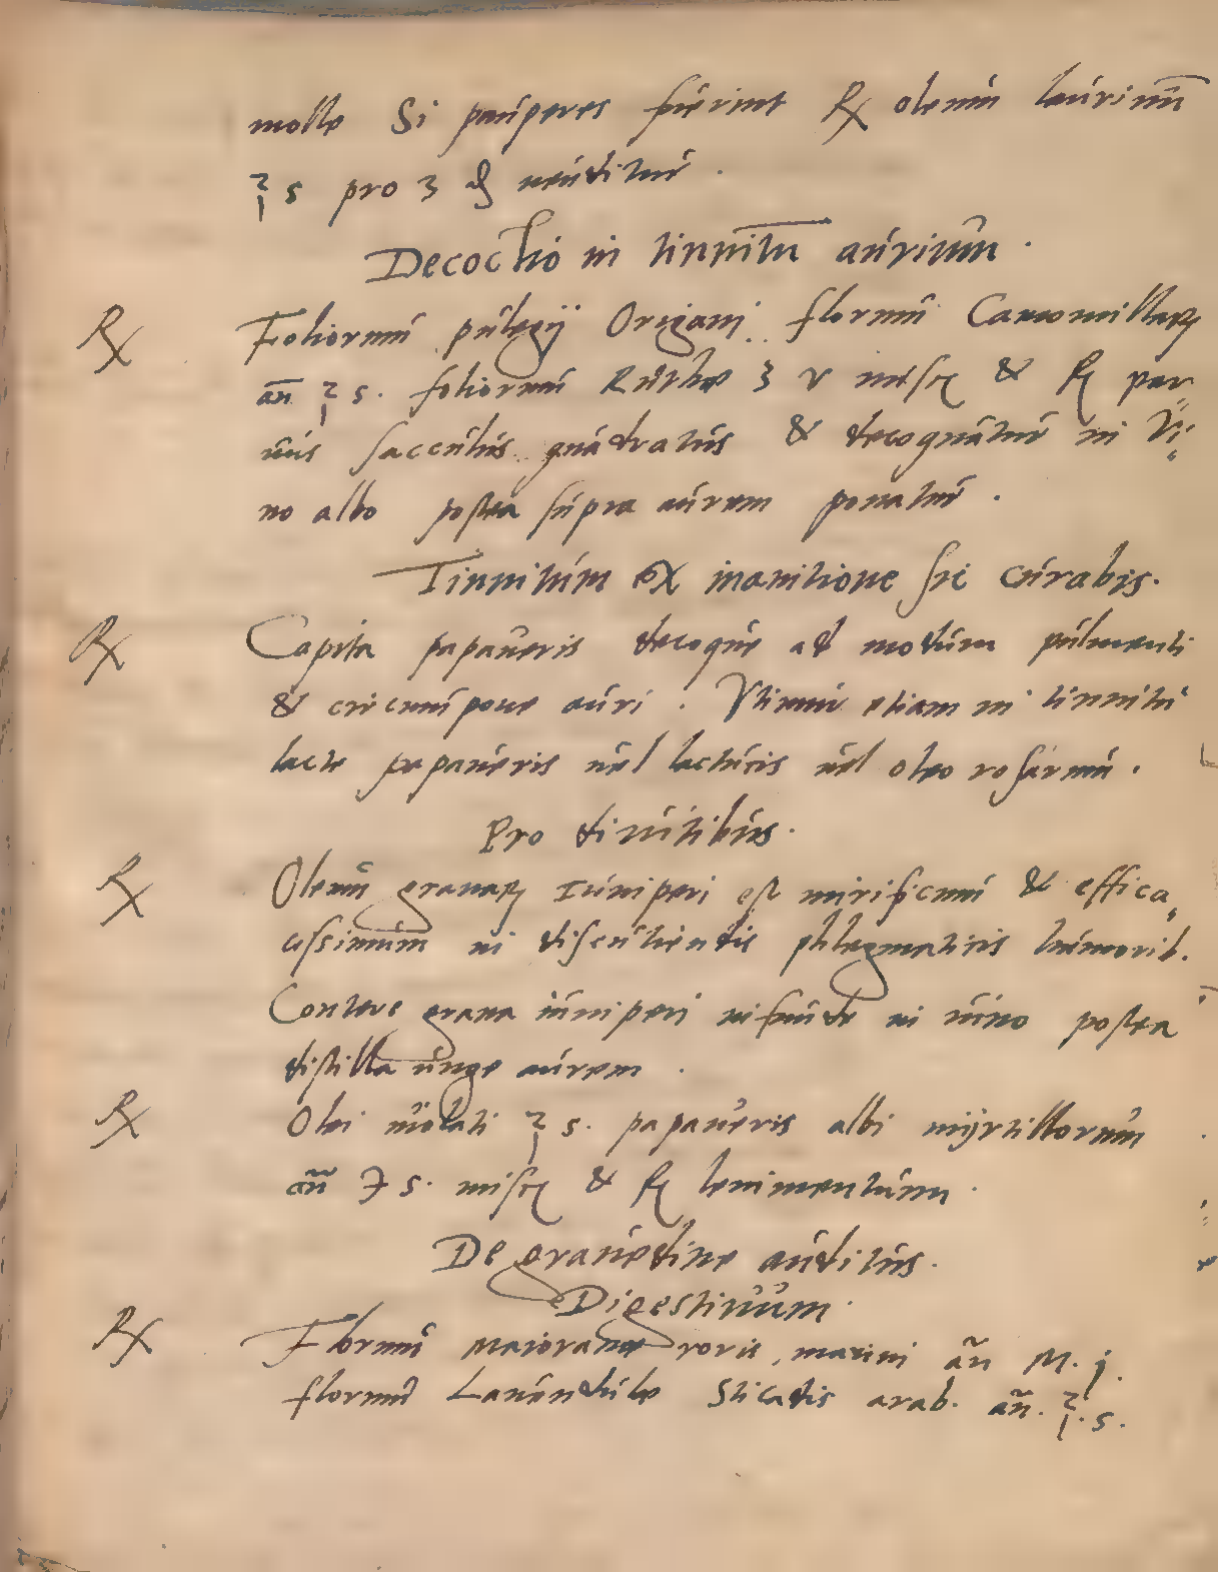 molle Si pauperes fuerint ℞ oleum laurinum̄
℥ s pro ʒ venditur.
Decoctio in tinnitū aurium.
℞ Foliorum pulegij Origani florum Camomillaꝝ
an̄ ℥ s. foliorum Ruthæ ʒ v misc & f par
uus sacculus quadratus & decoquatur in Vi„
no albo postea supra aurem ponatur.
Tinnitum ex inanitione sic curabis.
℞ Capita papaueris decoque ad modum pulmenti
& circumpone auri. Vtimur etiam in tinnitu
lacte papaueris uel lactucis uel oleo rosarum.
Pro diuitibus.
℞ Oleum granaꝝ Iuniperi est mirificum & effica„
cissimum in discutiendis phlegmaticis humorib.
Contere grana iuniperi infunde in uino postea
distilla unge aurem.
℞ Olei uiolati ℥ s. papaueris albi mijrtillorum
an̄ s. misc & f lenimentum.
De grauedine auditus.
Digestiuum.
℞ Florum maioranæ roris marini an̄ M. j.
florum Lauendulæ Sticadis arab. an̄. ℥. s.